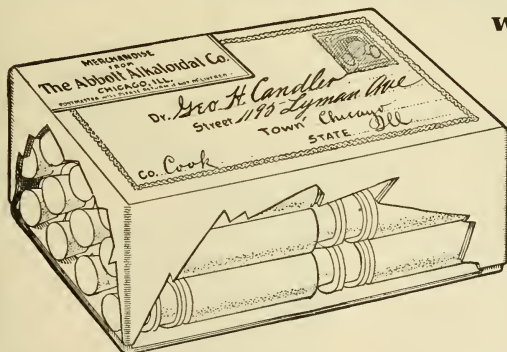 MERCHANDISE
FROM
The Abbott Alkaloidal Co.
CHICAGO, ILL.
POSTMASTER WILL PLEASE RETURN IF NOT DELIVERED.
Dr. Geo H. Candler
Street 1195 Lyman Ave
Town Chicago
STATE Ill
Co. Cook
W